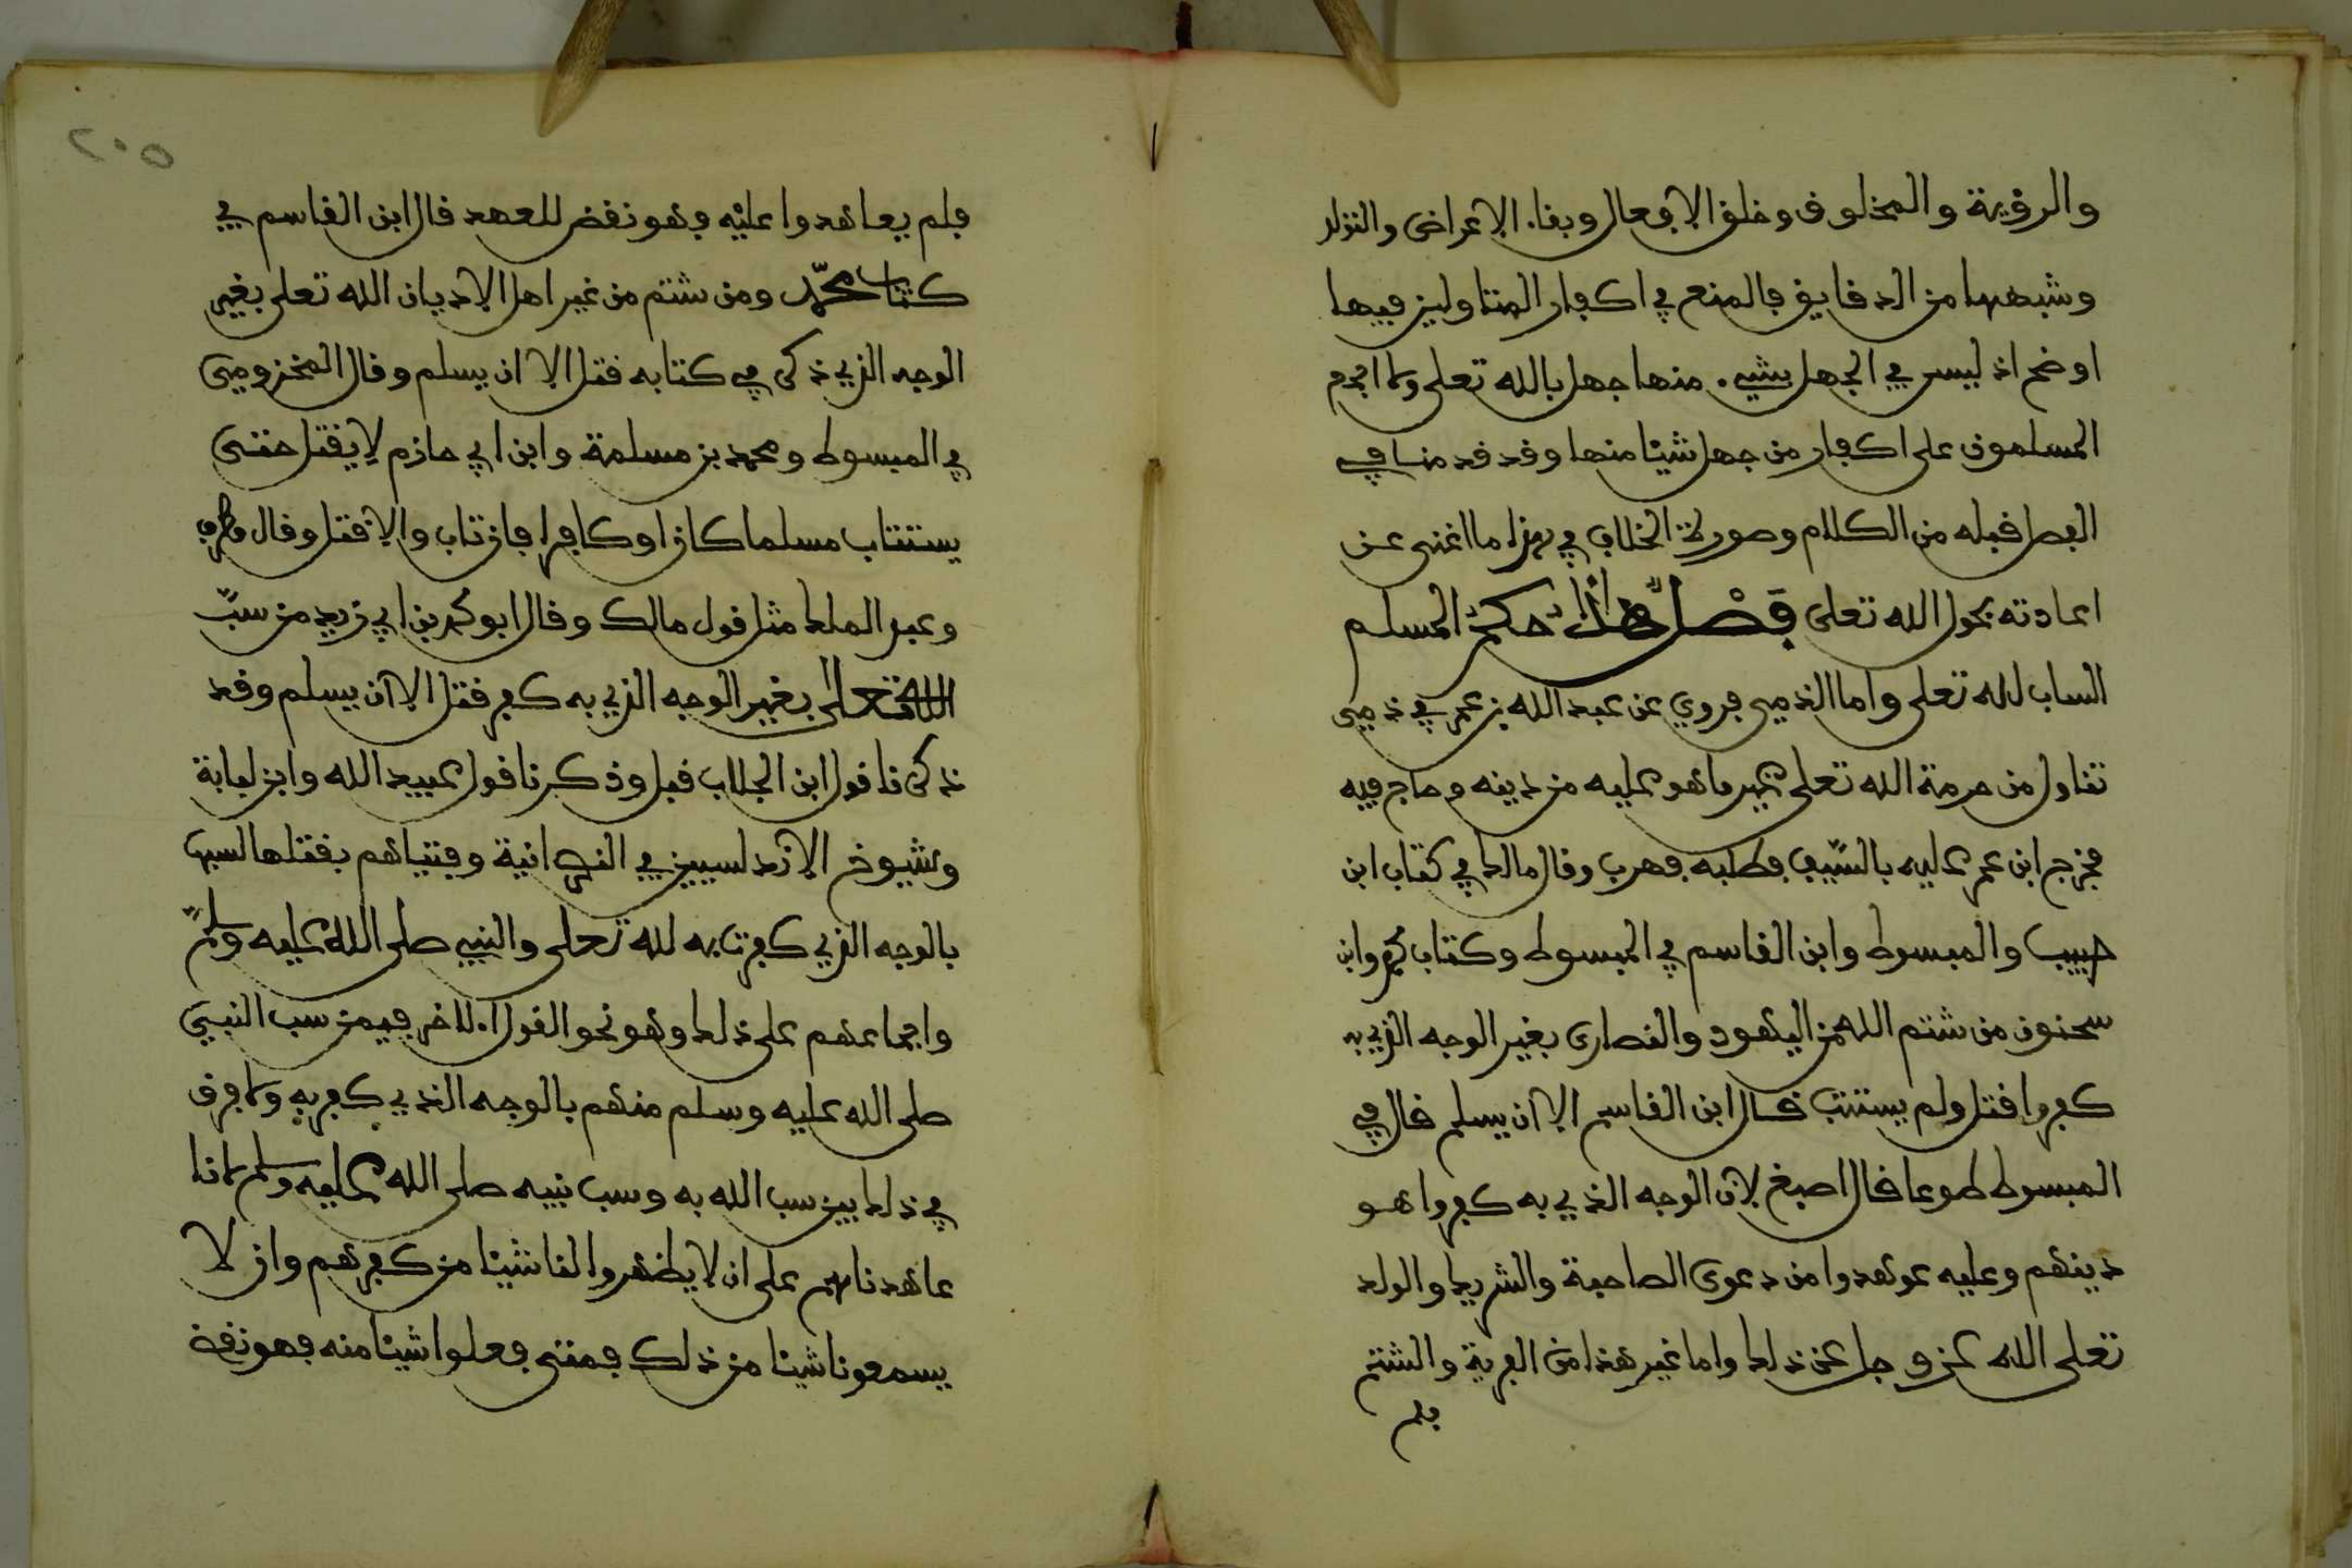 والرؤية والمخلوق وخلق الافعال وبقاء الاعراض والتولد
وشبهها من الدقايق فالمنع في اكفار المتاولين فيها
اوضح اذ ليس في الجهل بشيء منها جهل بالله تعلى ولا اجمع
المسلمون على اكفار من جهل شيئا منها وقد قدمنا في
الفصل قبله من الكلام وصورة الخلاف في هذا ما اغنى عن
اعادته بحول الله تعلى فَصْلٌ هذا حكم المسلم
الساب لله تعلى واما الذمي فروي عن عبد الله بن عمر في ذمي
تناول من حرمة الله تعلى غير ما هو عليه من دينه وحاج فيه
فخرج ابن عمر عليه بالسّيف فطلبه فهرب وقال مالك في كتاب ابن
حبيب والمبسوط وابن القاسم في المبسوط وكتاب محمد وابن
سحنون من شتم الله من اليهود والنصارى بغير الوجه الذي به
كفروا قتل ولم يستتب قال ابن القاسم الا ان يسلم قال في
المبسوط طوعا قال اصبغ لان الوجه الذي به كفروا هو
دينهم وعليه عوهدوا من دعوى الصاحبة والشريك والولد
تعلى الله عز وجل عن ذلك واما غير هذا من الفرية والشتم
فلم
٢٠٥
فلم يعاهدوا عليه فهو نقض للعهد قال ابن القاسم في
كتاب محمّد ومن شتم من غير اهل الاديان الله تعلى بغير
الوجه الذي ذكر في كتابه قتل الا ان يسلم وقال المخزومي
في المبسوط ومحمد بن مسلمة وابن ابي حازم لا يقتل حتى
يستتاب مسلما كان او كافرا فان تاب والا قتل وقال مطرف
وعبد الملك مثل قول مالك وقال ابو محمد بن ابي زيد من سبّ
الله تعلى بغير الوجه الذي به كفر قتل الا ان يسلم وقد
ذكرنا قول ابن الجلاب قبل وذكرنا قول عبيد الله وابن لبابة
وشيوخ الاندلسيين في النصرانية وفتياهم بقتلها لسبها
بالوجه الذي كفرت به لله تعلى والنبي صلى الله عليه وسلم
واجماعهم على ذلك وهو نحو القول الاخر فيمن سب النبي
صلى الله عليه وسلم منهم بالوجه الذي كفر به ولا فرق
في ذلك بين سب الله به وسب نبيه صلى الله عليه وسلم لانا
عاهدناهم على ان لا يظهروا لنا شيئا من كفرهم وان لا
يسمعونا شيئا من ذلك فمتى فعلوا شيئا منه فهو نقض